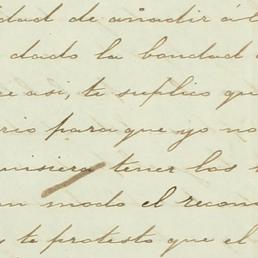 dad de añadir á t
dado la bondad
e asi, te suplico qu
rio para que yo no
uisiera tener los
un modo el recono
y te protesto que el